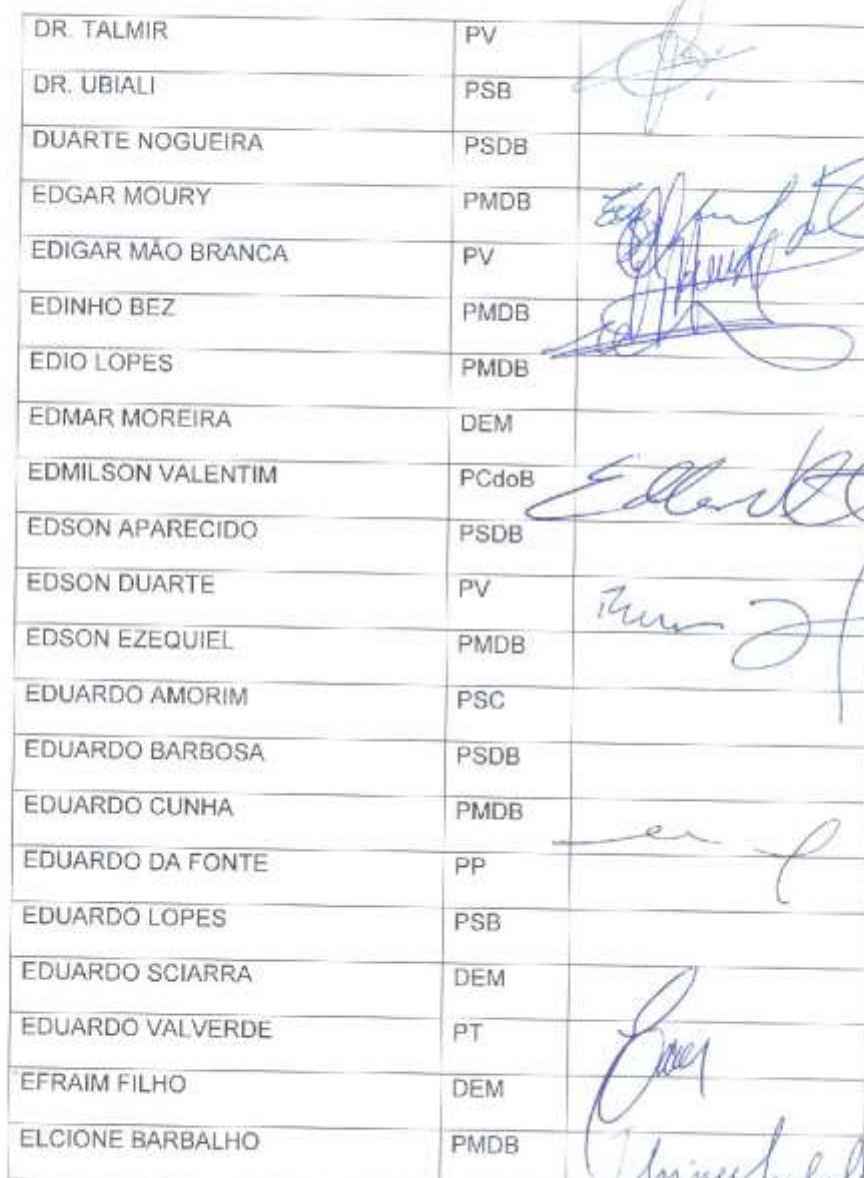 DR. TALMIR PV
DR. UBIALI PSB
DUARTE NOGUEIRA PSDB
EDGAR MOURY PMDB
EDIGAR MÃO BRANCA PV
EDINHO BEZ PMDB
EDIO LOPES PMDB
EDMAR MOREIRA DEM
EDMILSON VALENTIM PCdoB
EDSON APARECIDO PSDB
EDSON DUARTE PV
EDSON EZEQUIEL PMDB
EDUARDO AMORIM PSC
EDUARDO BARBOSA PSDB
EDUARDO CUNHA PMDB
EDUARDO DA FONTE PP
EDUARDO LOPES PSB
EDUARDO SCIARRA DEM
EDUARDO VALVERDE PT
EFRAIM FILHO DEM
ELCIONE BARBALHO PMDB